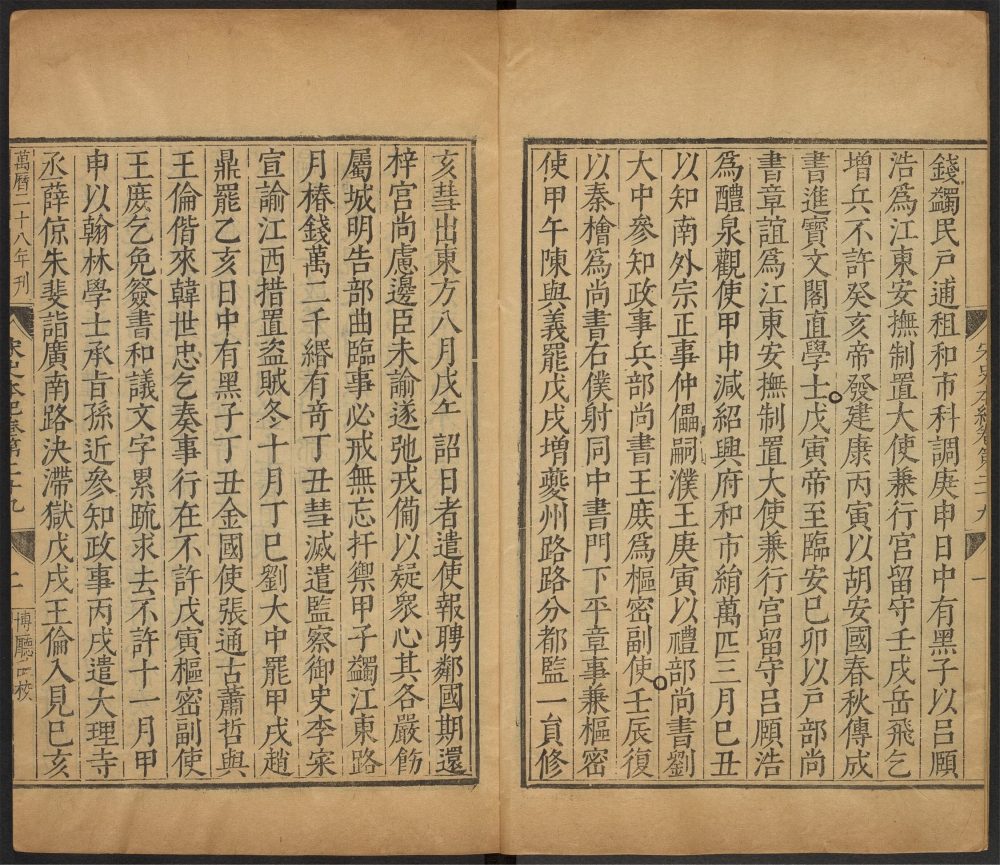 錢蠲民戶逋租和市科調庚申日中有黑子以呂頤
浩爲江東安撫制置大使兼行宮留守壬戌岳飛乞
增兵不許癸亥帝發建康丙寅以胡安國春秋傳成
書進寶文閣直學士戊寅帝至臨安己卯以戶部尚
書章誼爲江東安撫制置大使兼行宮留守呂頤浩
爲醴泉觀使甲申減紹興府和市絹萬匹三月己丑
以知南外宗正事仲儡嗣濮王庚寅以禮部尚書劉
大中參知政事兵部尚書王庶爲樞密副使壬辰復
以秦檜爲尚書右僕射同中書門下平章事兼樞密
使甲午陳與義罷戊戌增夔州路路分都監一員修
宋史本紀卷第二十九
一
亥彗出東方八月戊午詔日者遣使報聘鄰國期還
梓宮尚慮邊臣未諭遂弛戎備以疑衆心其各嚴飭
屬城明告部曲臨事必戒無忘扞禦甲子蠲江東路
月樁錢萬二千緡有奇丁丑彗滅遣監察御史李寀
宣諭江西措置盜賊冬十月丁巳劉大中罷甲戌趙
鼎罷乙亥日中有黑子丁丑金國使張通古蕭哲與
王倫偕來韓世忠乞奏事行在不許戊寅樞密副使
王庶乞免簽書和議文字累疏求去不許十一月甲
申以翰林學士承旨孫近參知政事丙戌遣大理寺
丞薛倞朱斐詣廣南路決滯獄戊戌王倫入見己亥
萬曆二十八年刊
宋史本紀卷第二十九
二
博廳 校